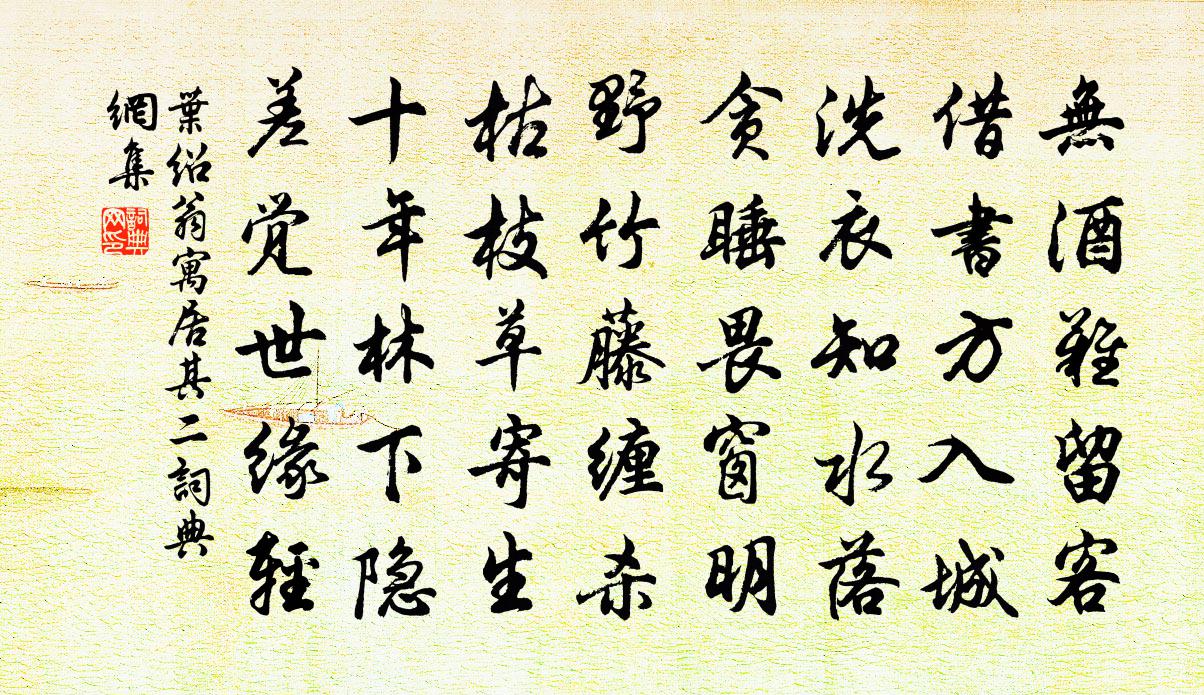 無酒難留客
借書方入城
洗衣知水落
贪睡畏窗明
野竹藤缠杀
枯枝草寄生
十年林下隐
差觉世缘輕
葉绍翁寓居其二詞典
網集
詞典
网印